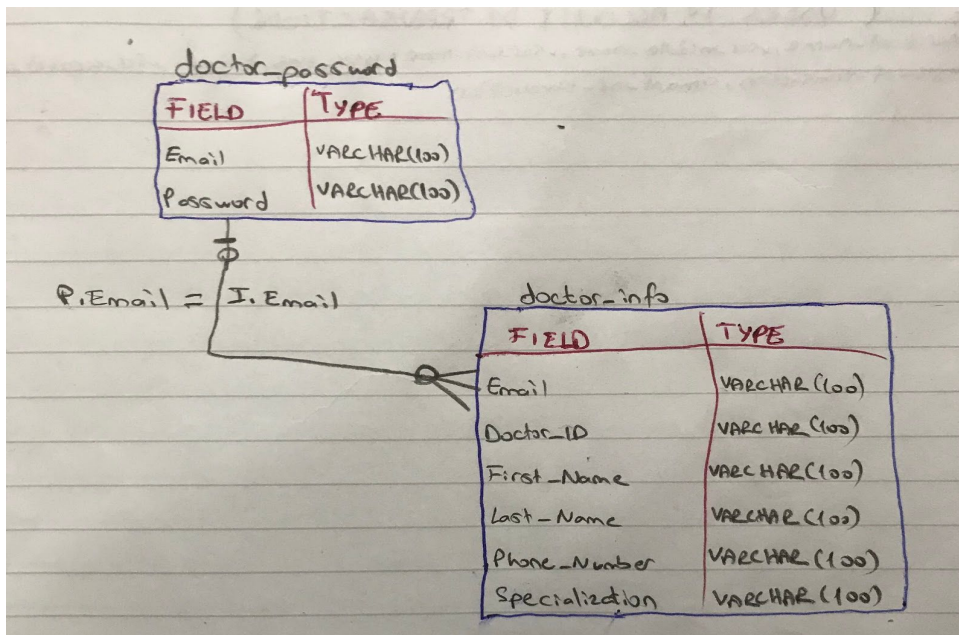 doctor_password
FIELD TYPE
Email VARCHAR(100)
Password VARCHAR(100)
P.Email = I.Email
doctor_info
FIELD TYPE
Email VARCHAR(100)
Doctor_ID VARCHAR(100)
First_Name VARCHAR(100)
Last_Name VARCHAR(100)
Phone_Number VARCHAR(100)
Specialization VARCHAR(100)